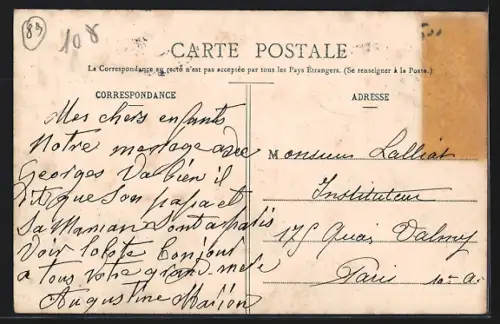 89
108
CARTE POSTALE
La Correspondance au recto n'est pas acceptée par tous les Pays Étrangers. (Se renseigner à la Poste.)
CORRESPONDANCE
Mes chers enfants
Notre avec
Georges Va bien il
Dit que son papa et
Sa Maman sont a
Voir Bonjour
a tous votre grand mere
Augustine
ADRESSE
Monsieur Lalliat
Instituteur
175 Quai Valmy
Paris 10e Ar